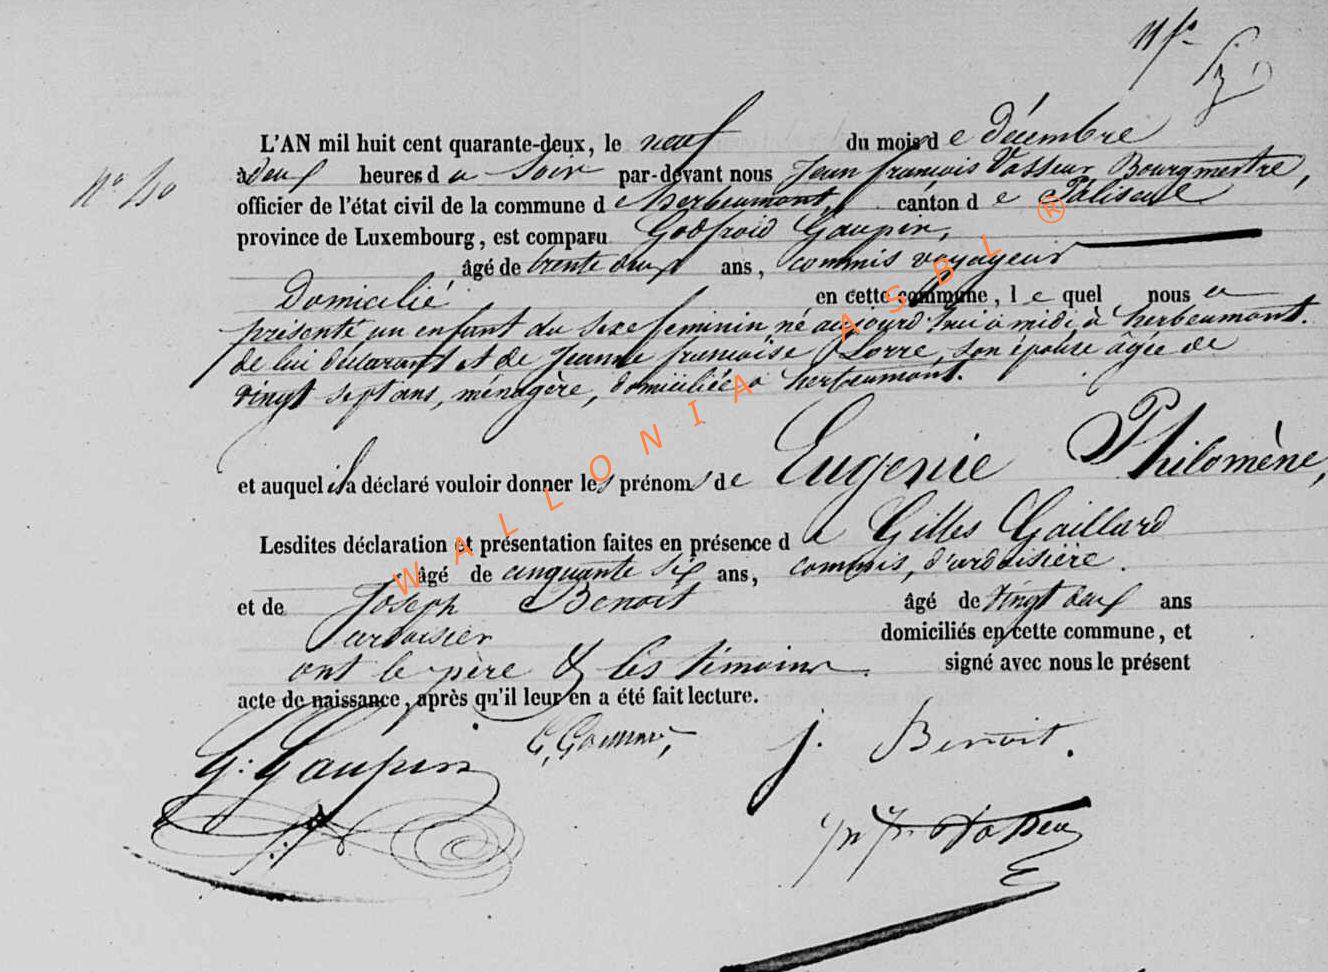 L'AN mil huit cent quarante-deux, le neuf du mois de décembre
N° 40
à deux heures du soir par-devant nous Jean françois Vasseur Bourgmestre,
officier de l'état civil de la commune de herbeumont, canton de Paliseul
province de Luxembourg, est comparu Godfroid Gaupin,
âgé de trente deux ans, commis voyageur
Domicilié en cette commune, lequel nous a
présenté un enfant du sexe feminin né aujourd'hui à midi à herbeumont.
de lui déclarant et de Jeanne françoise Lorre, son épouse agée de
vingt sept ans, ménagère, domiciliée à herbeumont.
et auquel il a déclaré vouloir donner les prénoms de Eugenie Philomène,
Lesdites déclaration et présentation faites en présence de Gilles Gaillard
âgé de cinquante six ans, commis, d'ardoisière.
et de Joseph Benoit âgé de vingt deux ans
ardoisier domiciliés en cette commune, et
ont le père & les témoins signé avec nous le présent
acte de naissance, après qu'il leur en a été fait lecture.
G. Gaupin
J. Benoit.
WALLONIA ASBL ®